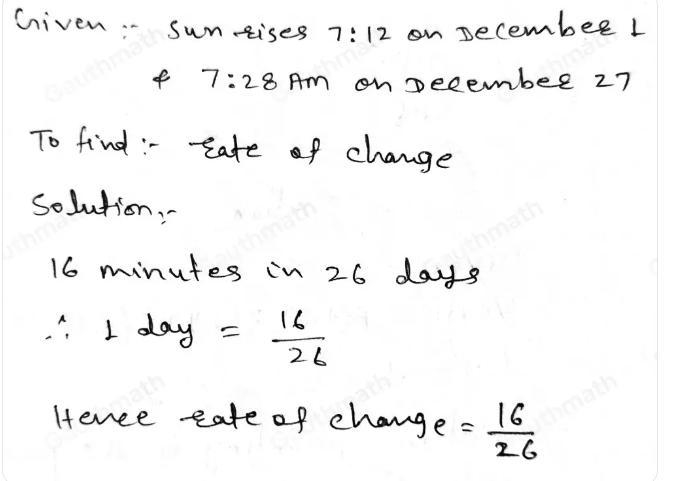 Given :- Sun rises 7:12 on December 1
& 7:28 Am on December 27
To find :- rate of change
Solution:-
16 minutes in 26 days
∴ 1 day = 16/26
Hence rate of change = 16/26